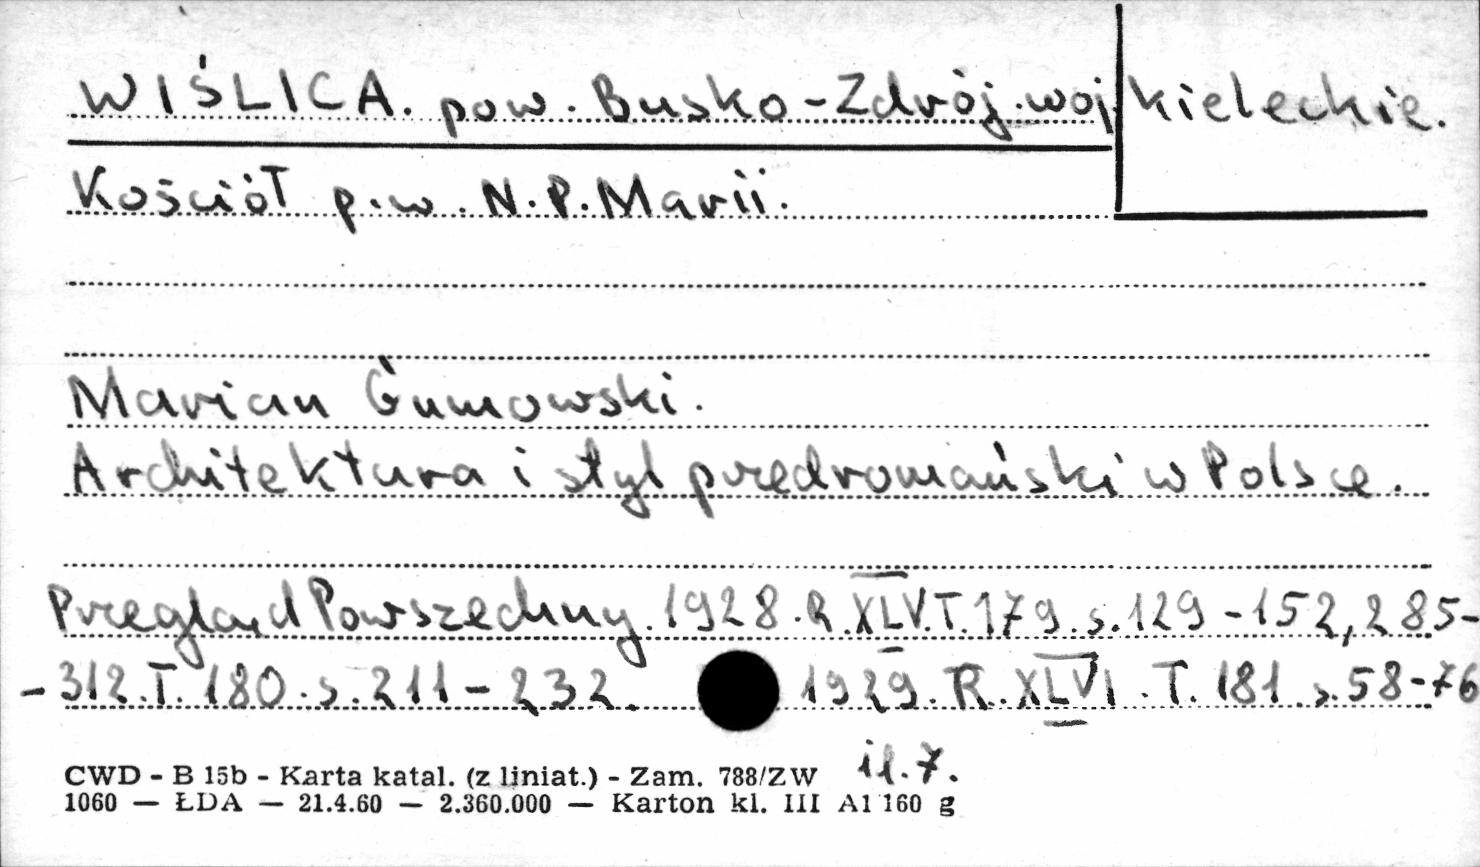 WIŚLICA. pow. Busko-Zdrój. woj. kieleckie.
Kościół p.w. N.P. Marii.
Marian Gumowski.
Architektura i styl przedromański w Polsce.
Przegląd Powszechny. 1928. R. XLV. T. 179. s. 129-152, 285-
-312. T. 180. s. 211-232. 1929. R. XLVI. T. 181. s. 58-76
il. 7.
CWD - B 15b - Karta katal. (z liniat.) - Zam. 788/ZW
1060 — ŁDA — 21.4.60 — 2.360.000 — Karton kl. III A1 160 g